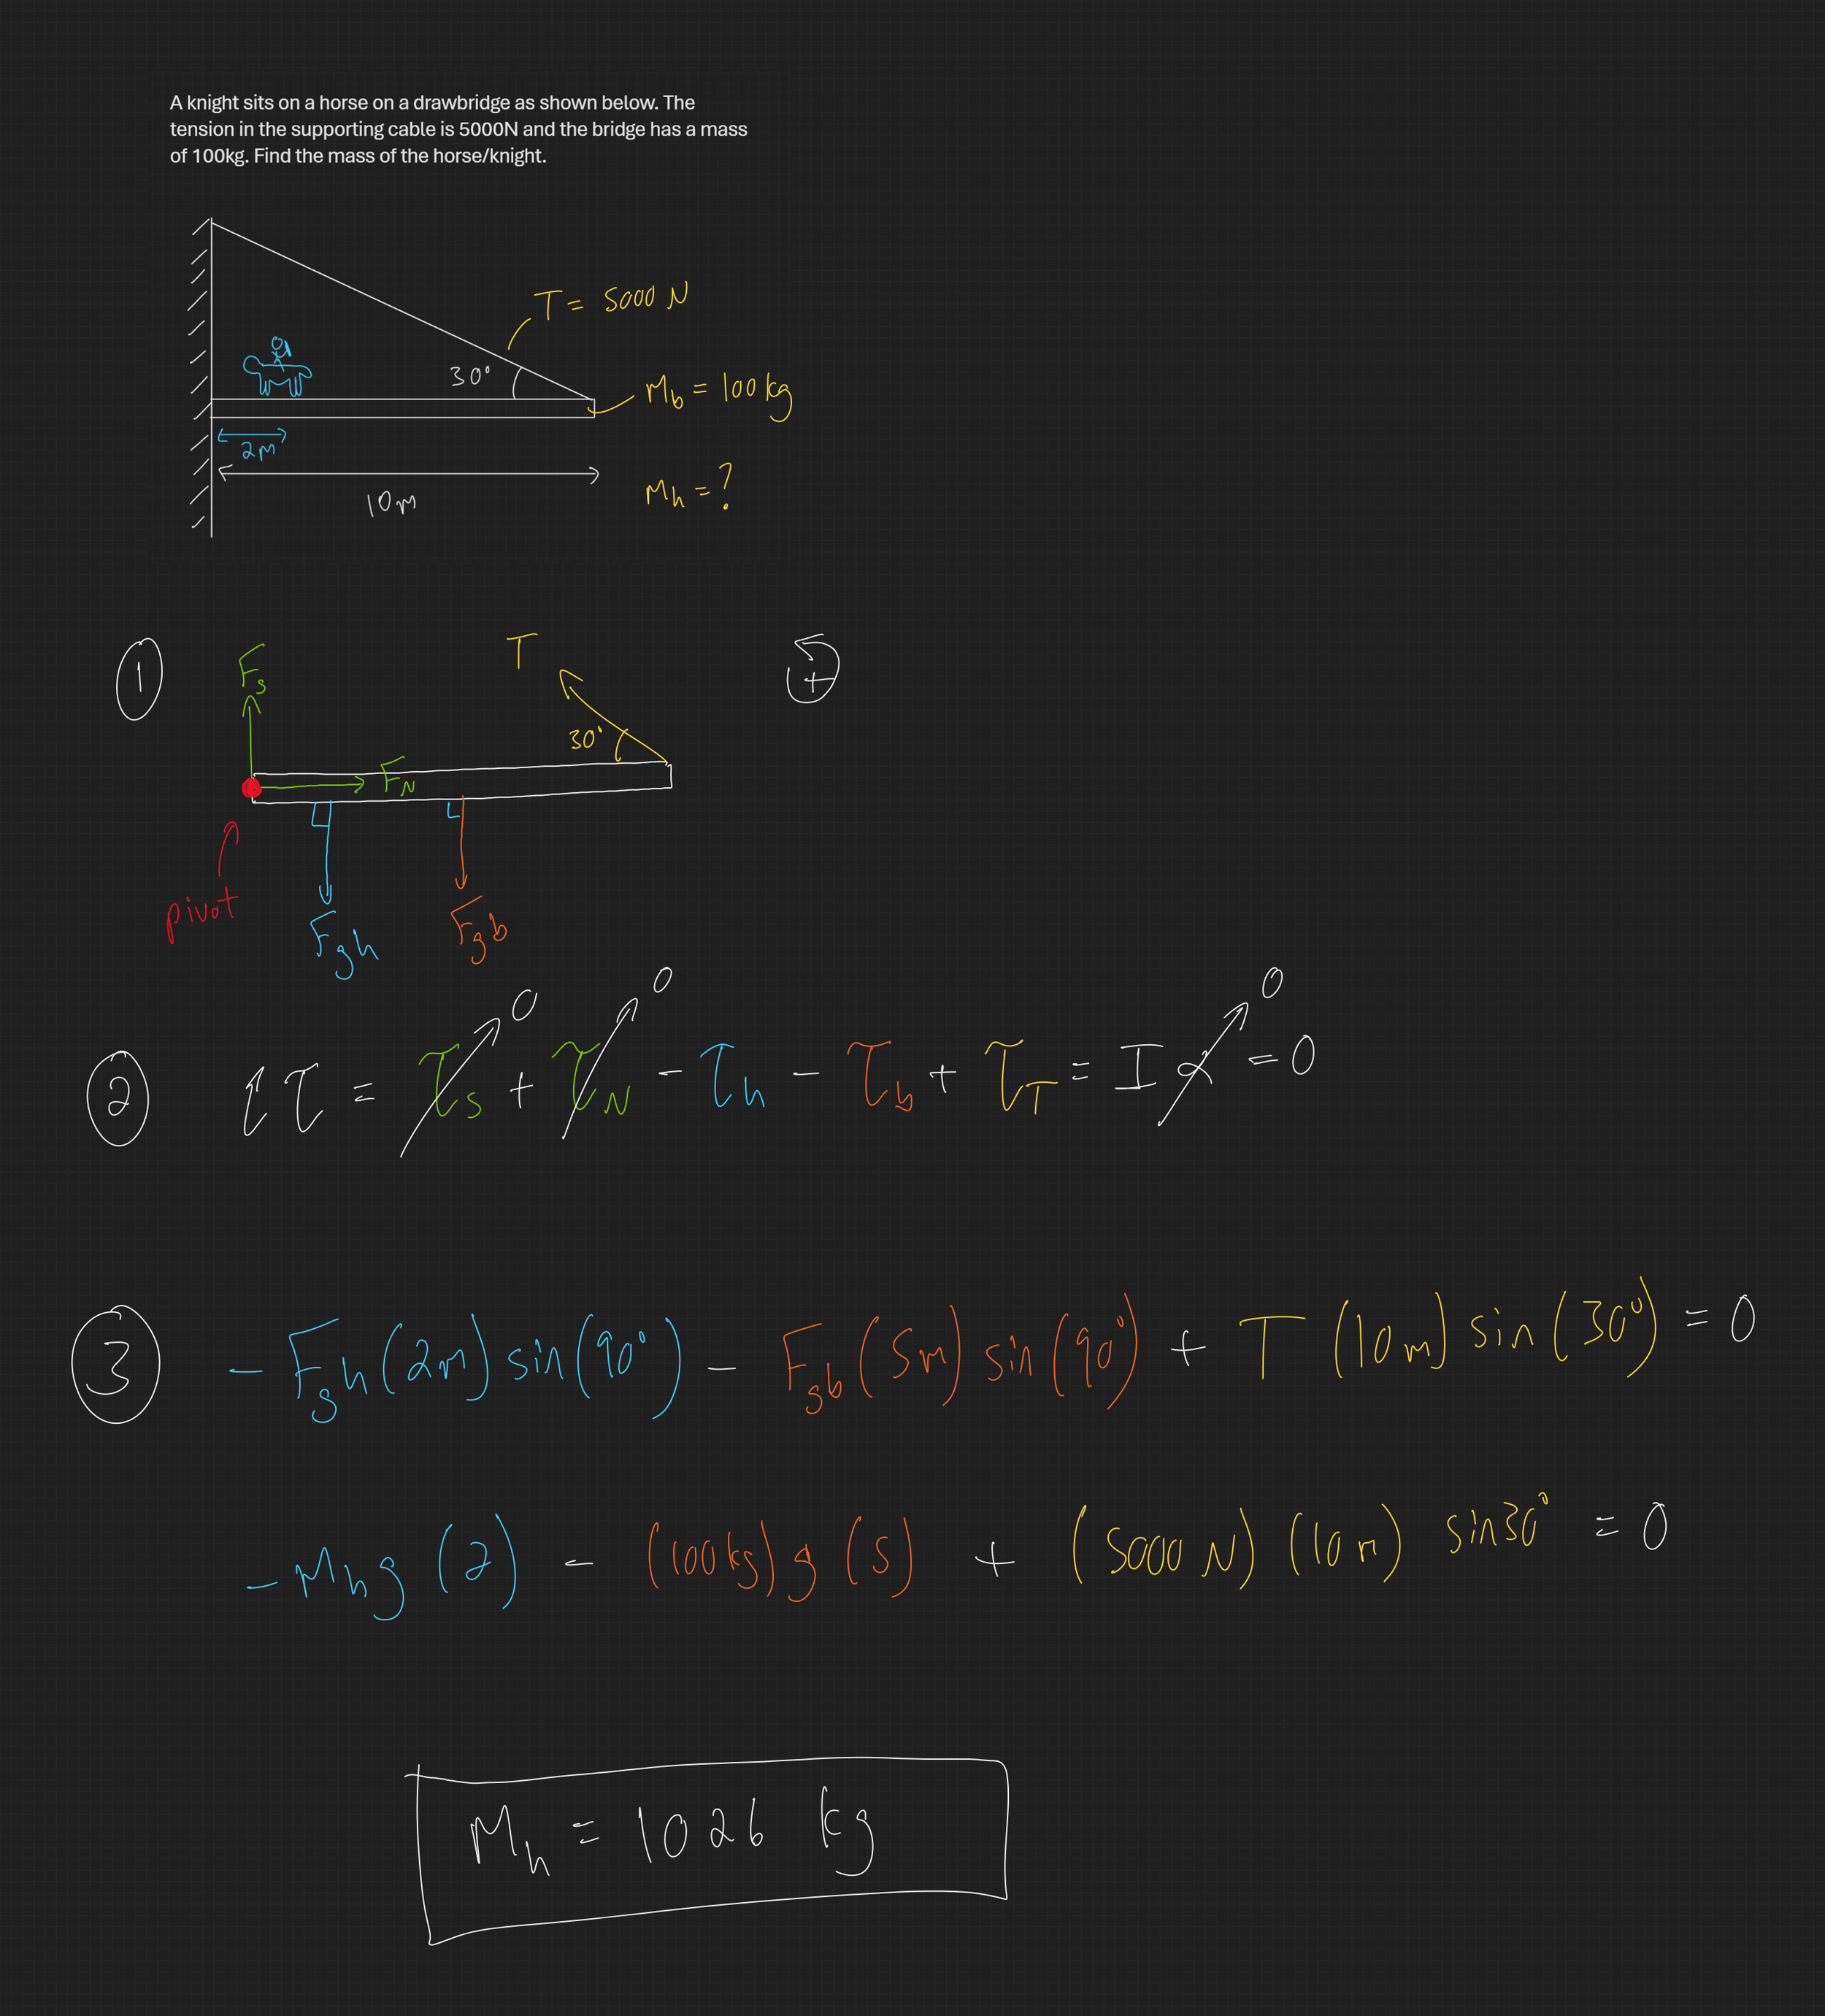 A knight sits on a horse on a drawbridge as shown below. The
tension in the supporting cable is 5000N and the bridge has a mass
of 100kg. Find the mass of the horse/knight.
T = 5000 N
30°
M_b = 100 kg
2m
M_h = ?
10m
①
F_s
T
+
30°
F_N
pivot
F_gh
F_gb
② Στ = τ_s + τ_N - τ_h - τ_b + τ_T = Iα = 0
0
0
0
③ - F_gh (2m) sin(90°) - F_gb (5m) sin(90°) + T (10m) sin(30°) = 0
- M_h g (2) - (100kg) g (5) + (5000 N) (10m) sin30° = 0
M_h = 1026 kg